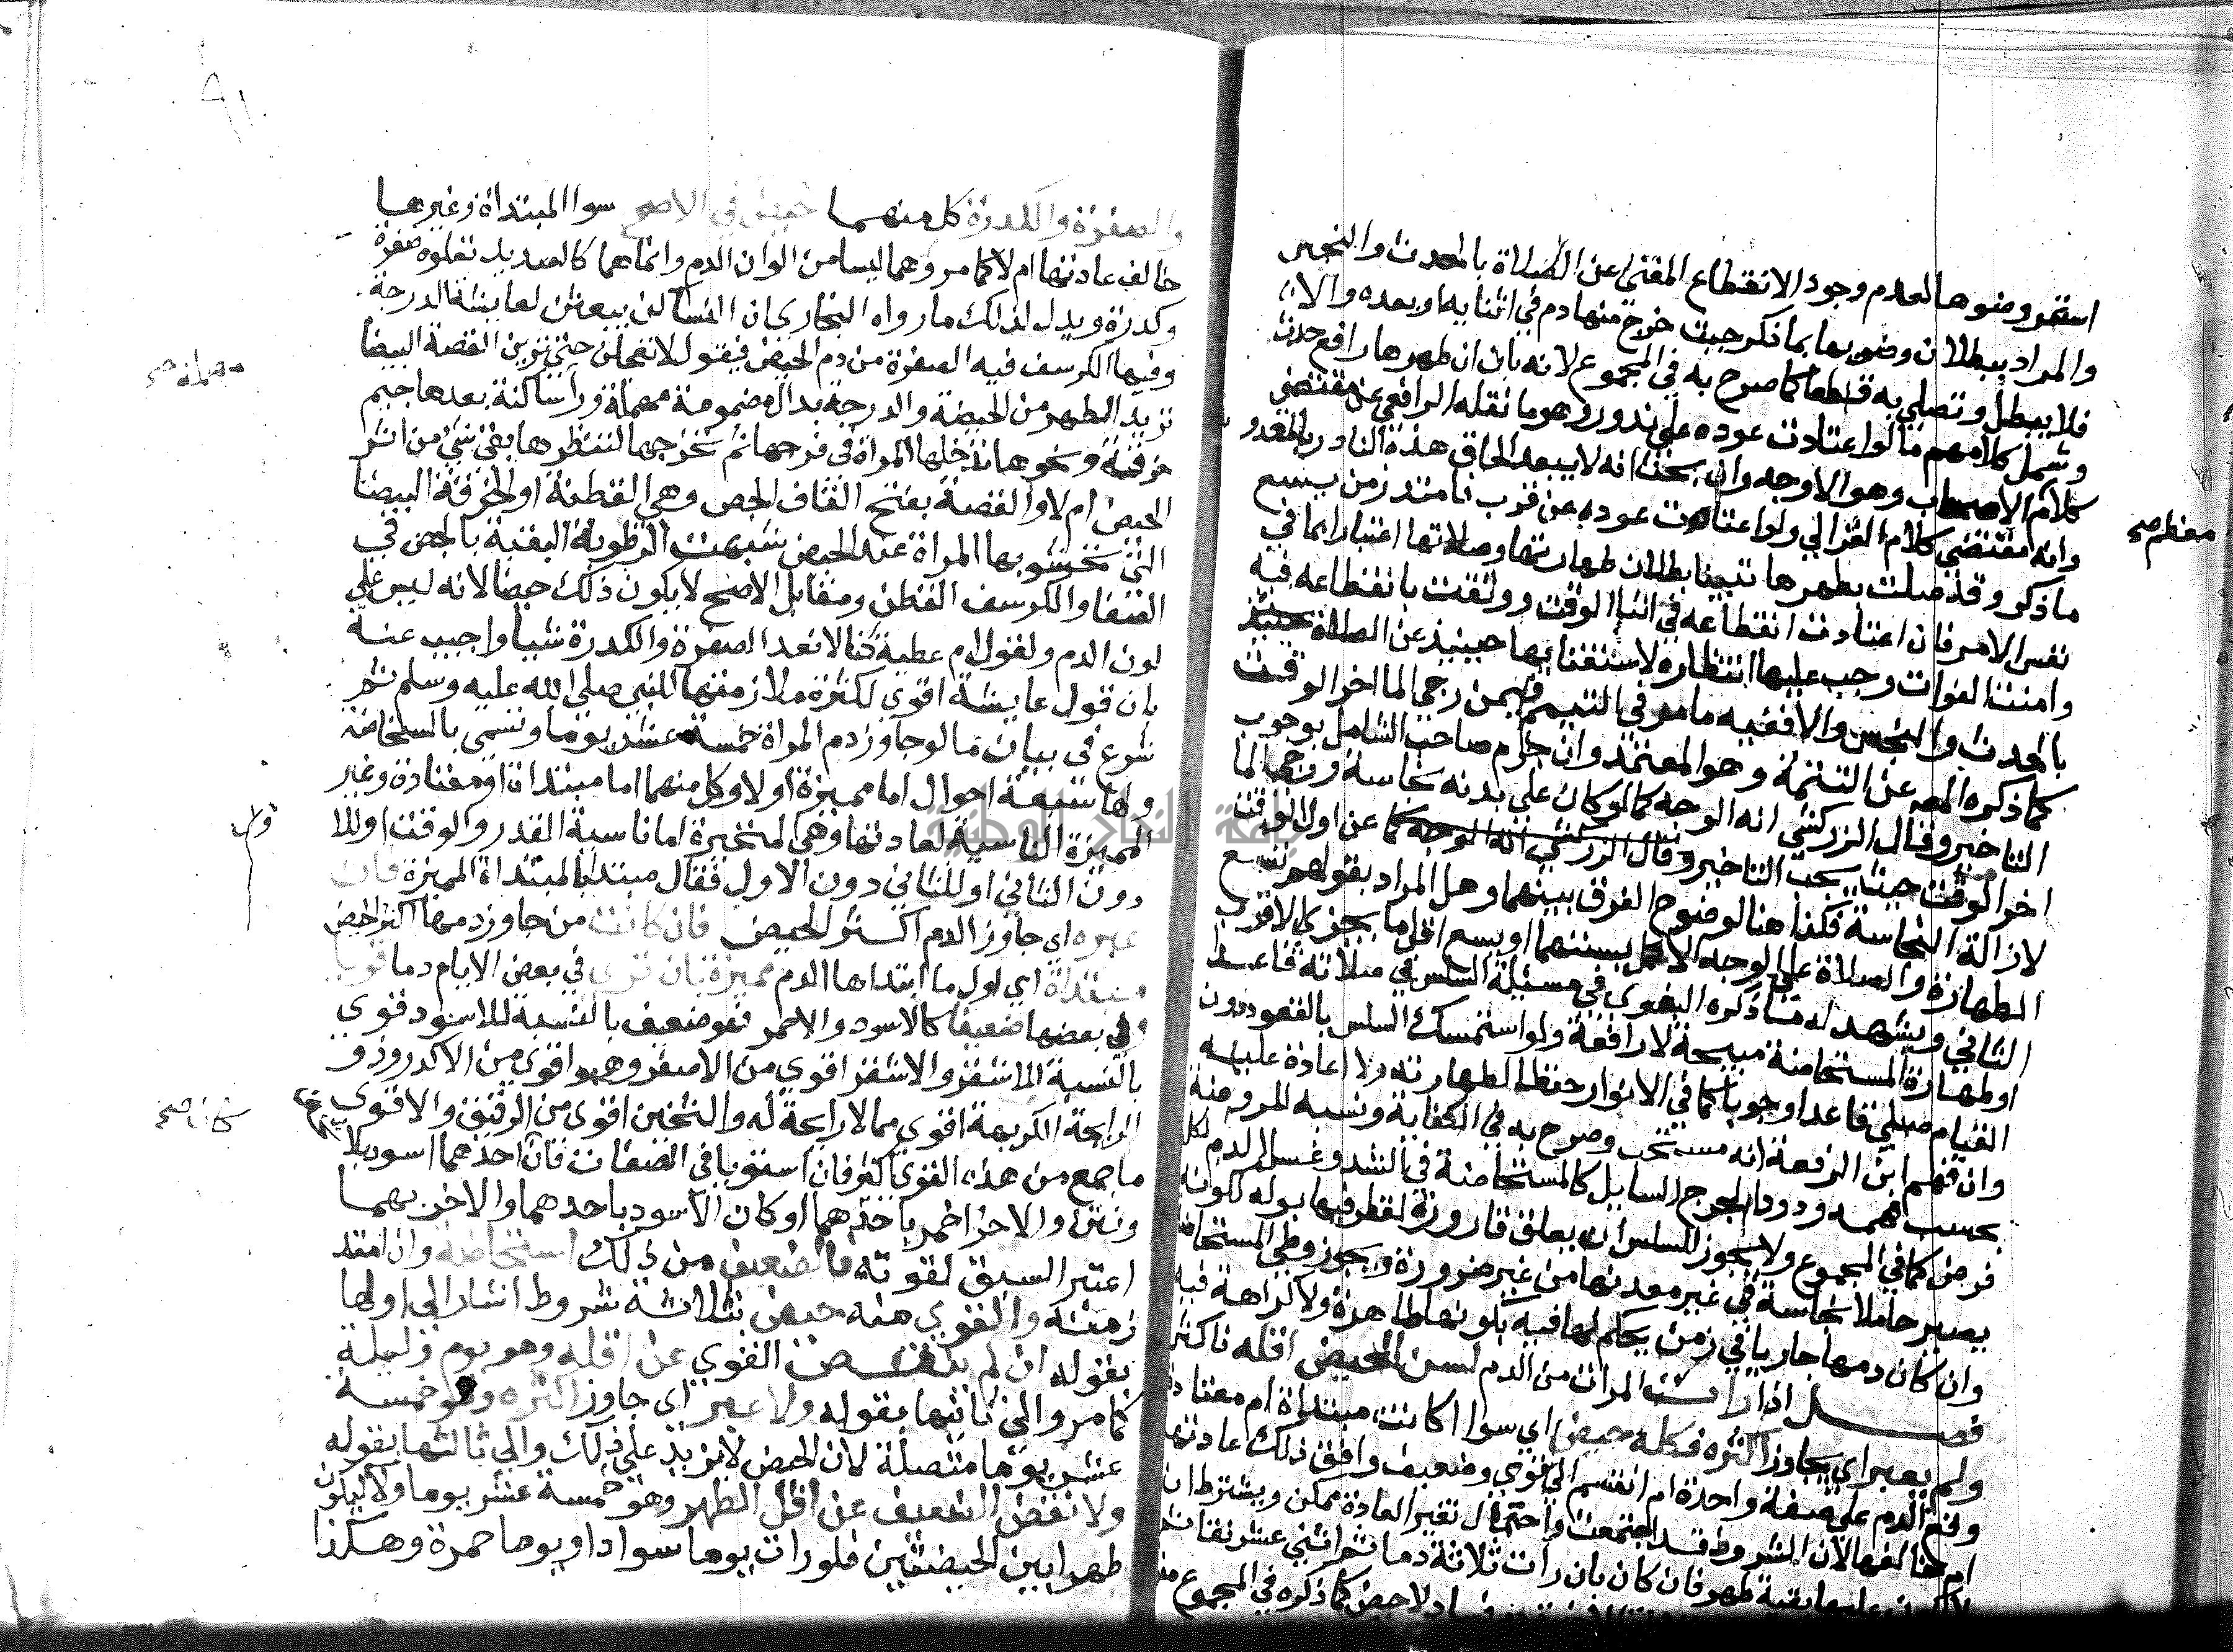 استمر وضوها لعدم وجود الانقطاع المغني عن الصلاة بالحدث والنجس
والمراد ببطلان وضويها بما ذكر حيث خرج منها دم في اثنايه او بعده والا
فلا يبطل وتصلي به قطعا كما صرح به في المجموع لانه بان ان طهرها رافع حدث
وشمل كلامهم ما لو اعتادت عوده على ندور وهو ما نقله الرافعي عن مقتضى
معظم صح
كلام الاصحاب وهو الاوجه وان بحث انه لا يبعد الحاق هذه النادرة بالمعدو
وانه مقتضى كلام الغزالي ولو اعتادت عوده عن قرب فامتد زمن يسع
ما ذكر وقد صلت بطهرها تبينا بطلان طهارتها وصلاتها اعتبارا بما في
نفس الامر فان اعتادت انقطاعه في اثنا الوقت ووثقت بانقطاعه فيه
وامنت الفوات وجب عليها انتظاره لاستغنايها حينيذ عن الصلاة
بالحدث والنجس والا ففيه ما مر في التيمم فيمن رجى الما اخر الوقت
كما ذكره المص عن التتمة وهو المعتمد وان جزم صاحب الشامل بوجوب
التاخير وقال الزركشي انه الوجه كما لو كان على بدنه نجاسة ورجى الما
اخر الوقت حيث يجب التاخير وقال الزركشي انه الوجه كما عن اول الوقت
لازالة النجاسة فكذا هنا لوضوح الفرق بينهما وهل المراد بقولهم تسع
الطهارة والصلاة على الوجه الاكمل بسننهما او يسع اقل ما يجزي الاقرب
الثاني ويشهد له ما ذكره البغوي في مسئلة السلس في صلاته قاعدا
او طهارة المستحاضة مبيحة لا رافعة ولو استمسك السلس بالقعود دون
القيام صلى قاعدا وجوبا كما في الانوار حفظا لطهارته ولا اعادة عليه
وان فهم ابن الرفعة انه مستحب وصرح به في الكفاية ونسبه للروضة
بحسب فهمه ودوام الجرح السايل كالمستحاضة في الشد وغسل الدم لكل
فرض كما في المجموع ولا يجوز للسلس ان يعلق قارورة لقطر فيها بوله لكونه
يصير حاملا نجاسة في غير معدنها من غير ضرورة ويجوز وطي المستحاضة
وان كان دمها جاريا في زمن يحكم لها فيه بكونها طاهرة ولا كراهة فيه
فصل اذا رات المراة من الدم لسن الحيض اقله فاكثر
ولم يعبر اي يجاوز اكثره فكله حيض اي سوا اكانت مبتداة ام معتادة
وقع الدم على صفة واحدة ام انقسم الى قوي وضعيف وافق ذلك عادتها
ام خالفها لان الشروط قد اجتمعت واحتمال تغير العادة ممكن ويشترط ان
لا يكون عليها بقية طهر فان كان بان رات ثلاثة دما ثم اثني عشر نقا ثم
والصفرة والكدرة كل منهما حيض في الاصح سوا المبتداة وغيرها
خالف عادتها ام لا كما مر وهما ليسا من الوان الدم وانما هما كالصديد تعلوه صفرة
وكدرة ويدل لذلك ما رواه البخاري ان النسا كن يبعثن لعايشة الدرجة
وفيها الكرسف فيه الصفرة من دم الحيض فيقول لا تعجلن حتى ترين القصة البيضا
تريد الطهر من الحيضة والدرجة بدال مضمومة مهملة ورا ساكنة بعدها جيم
مهملة صح
خرقة ونحوها تدخلها المراة في فرجها ثم تخرجها لتنظر هل بقي شي من اثر
الحيض ام لا والقصة بفتح القاف الجص وهي القطنة او الخرقة البيضا
التي تحتشو بها المراة عند الحيض شبهت الرطوبة النقية بالجص في
الصفا والكرسف القطن ومقابل الاصح لا يكون ذلك حيضا لانه ليس على
لون الدم ولقول ام عطية كنا لا نعد الصفرة والكدرة شيا واجيب عنه
بان قول عايشة اقوى لكثرة ملازمتها للنبي صلى الله عليه وسلم ثم
شرع في بيان ما لو جاوز دم المراة خمسة عشر يوما وتسمى بالمستحاضة
ولها سبعة احوال اما مميزة او لا وكل منهما اما مبتداة او معتادة وغير
المميزة الناسية لعادتها وهي المتحيرة اما ناسية القدر والوقت او للا
ول
دون الثاني او للثاني دون الاول فقال مبتدا بالمبتداة المميزة فان
عبره اي جاوز الدم اكثر الحيض فان كانت من جاوز دمها اكثر الحيض
مبتداة اي اول ما ابتداها الدم مميزة بان ترى في بعض الايام دما قويا
وفي بعضها ضعيفا كالاسود والاحمر فهو ضعيف بالنسبة للاسود قوي
بالنسبة للاشقر والاشقر اقوى من الاصفر وهو اقوى من الاكدر وذو
الرايحة الكريهة اقوى مما لا رايحة له والثخين اقوى من الرقيق والاقوى
ما جمع من هذه القوى اكثر فان استويا في الصفات فان احدهما اسود بلا
ونتن والاخر احمر باحدهما او كان الاسود باحدهما والاخر بهما
اعتبر السبق لقوته فالضعيف من ذلك استحاضة وان امتد
زمنه والقوي منه حيض بثلاثة شروط اشار الى اولها
بقوله ان لم ينقص القوي عن اقله وهو يوم وليلة
كما مر والى ثانيها بقوله ولا عبر اي جاوز اكثره وهو خمسة
عشر يوما متصلة لان الحيض لا يزيد على ذلك والى ثالثها بقوله
ولا نقص الضعيف عن اقل الطهر وهو خمسة عشر يوما ولا ليكون
طهرا بين الحيضتين فلو رات يوما سوادا ويوما حمرة وهكذا